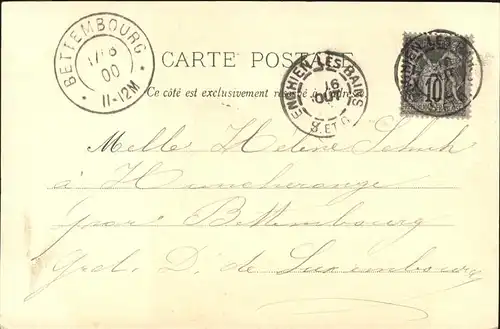 BETTEMBOURG
17/8
00
11-12M
CARTE POSTALE
Ce côté est exclusivement réservé à
ENGHIEN-LES-BAINS
16
AOUT
S. ET O.
10
Melle Helene Schuh
à Huncherange
par Bettembourg
Grd. D. de Luxembourg